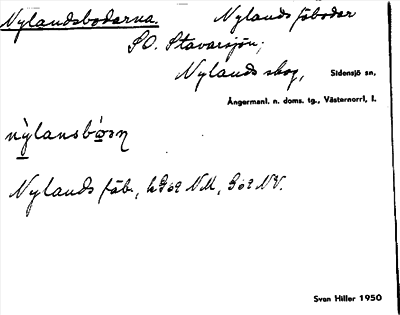 Nylandsbodarna. Nylands fäbodar
SO. Stavarsjön;
Nylands skog, Sidensjö sn,
Ångermanl. n. doms. tg., Västernorrl. l.
Nylands fäb.,
Sven Hiller 1950